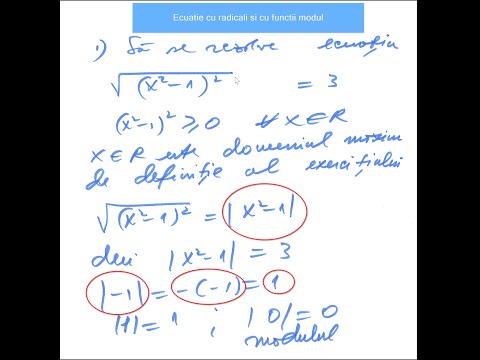 Ecuatie cu radicali si cu functii modul
1) Să se rezolve ecuația
√(x²-1)² = 3
(x²-1)² ≥ 0 ∀ x∈R
x∈R este domeniul maxim
de definiție al exercițiului
√(x²-1)² = |x²-1|
deci |x²-1| = 3
|-1| = -(-1) = 1
|1| = 1 ; |0| = 0
modulul